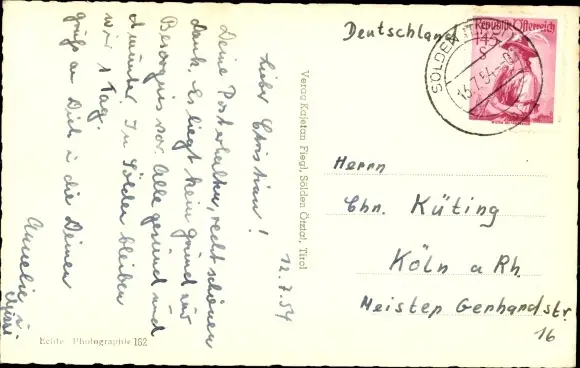 12.7.54
Lieber Christian!
Deine Post erhalten, recht schönen
Dank. Es liegt kein Grund zur
Besorgnis vor. Alle gesund und
munter. In Sölden bleiben
wir 1 Tag.
grüße an Dich u die Deinen
Amelie u.
Echte Photographie 162
Verag Kajetan Fiegl, Sölden Ötztal, Tirol
Deutschland
Republik Österreich
1.45
SÖLDEN
Herrn
Chr. Küting
Köln a Rh.
Meister Gerhardstr.
16